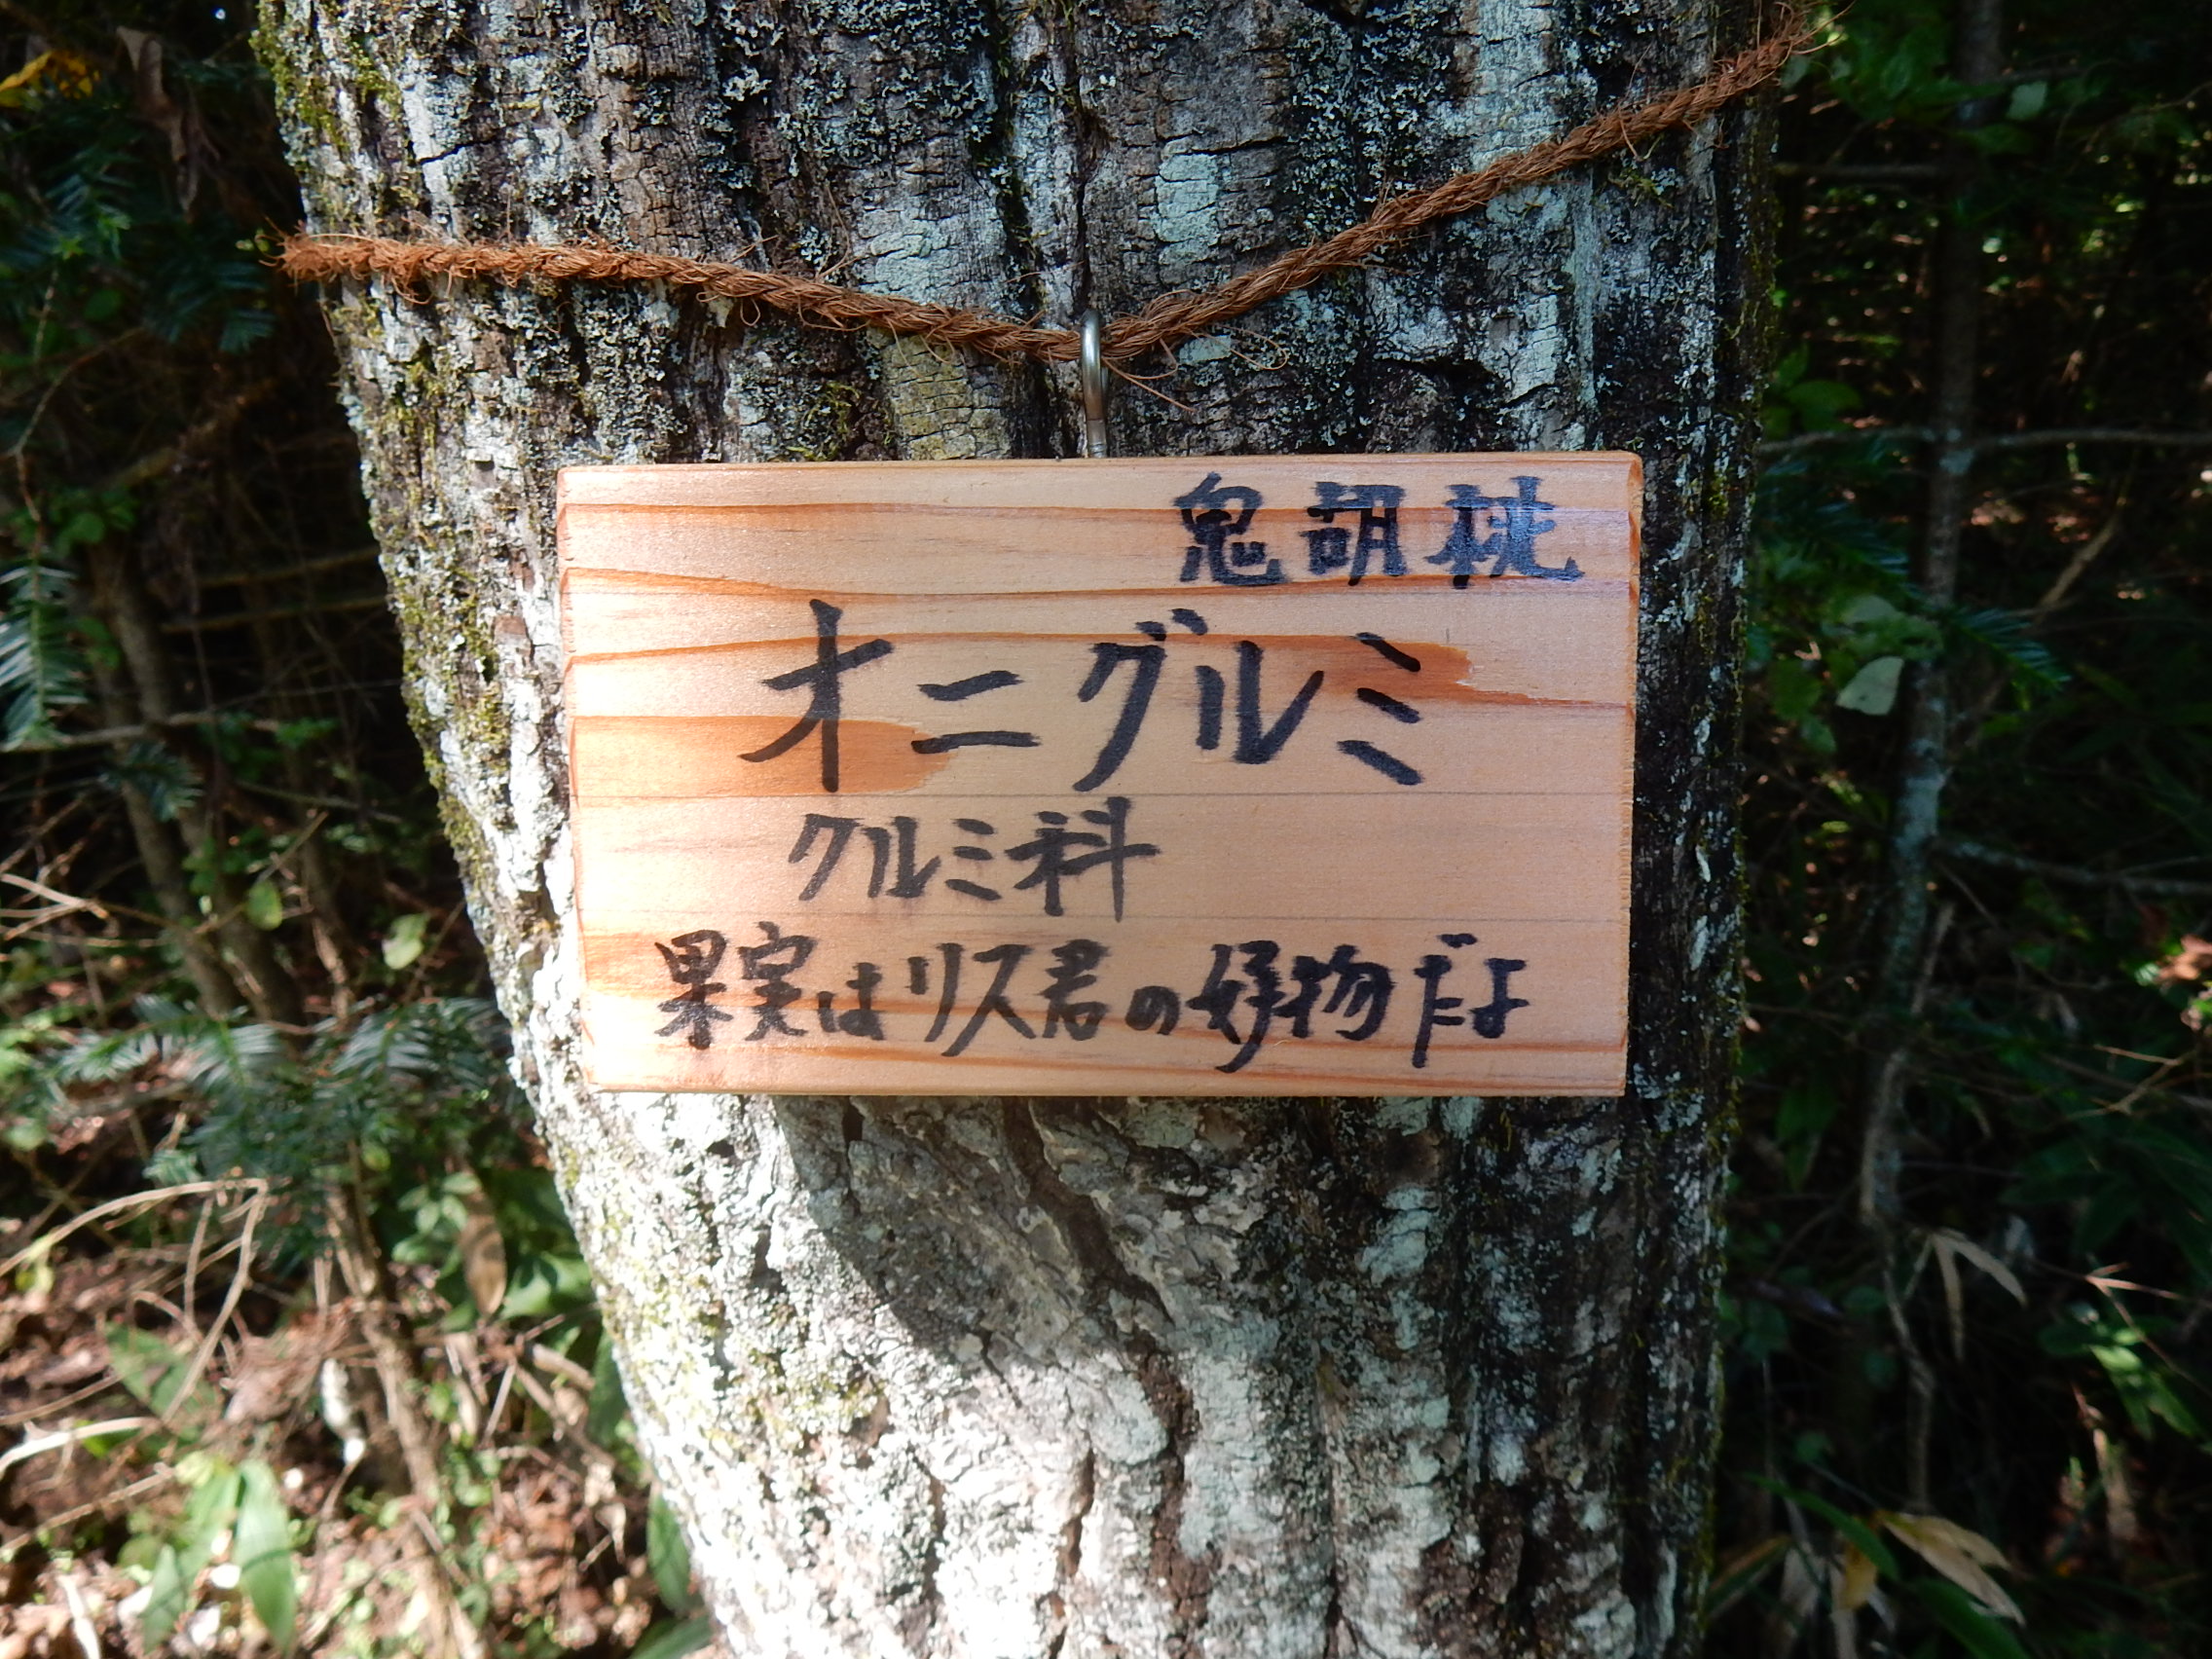 鬼胡桃
オニグルミ
クルミ科
果実はリス君の好物だよ